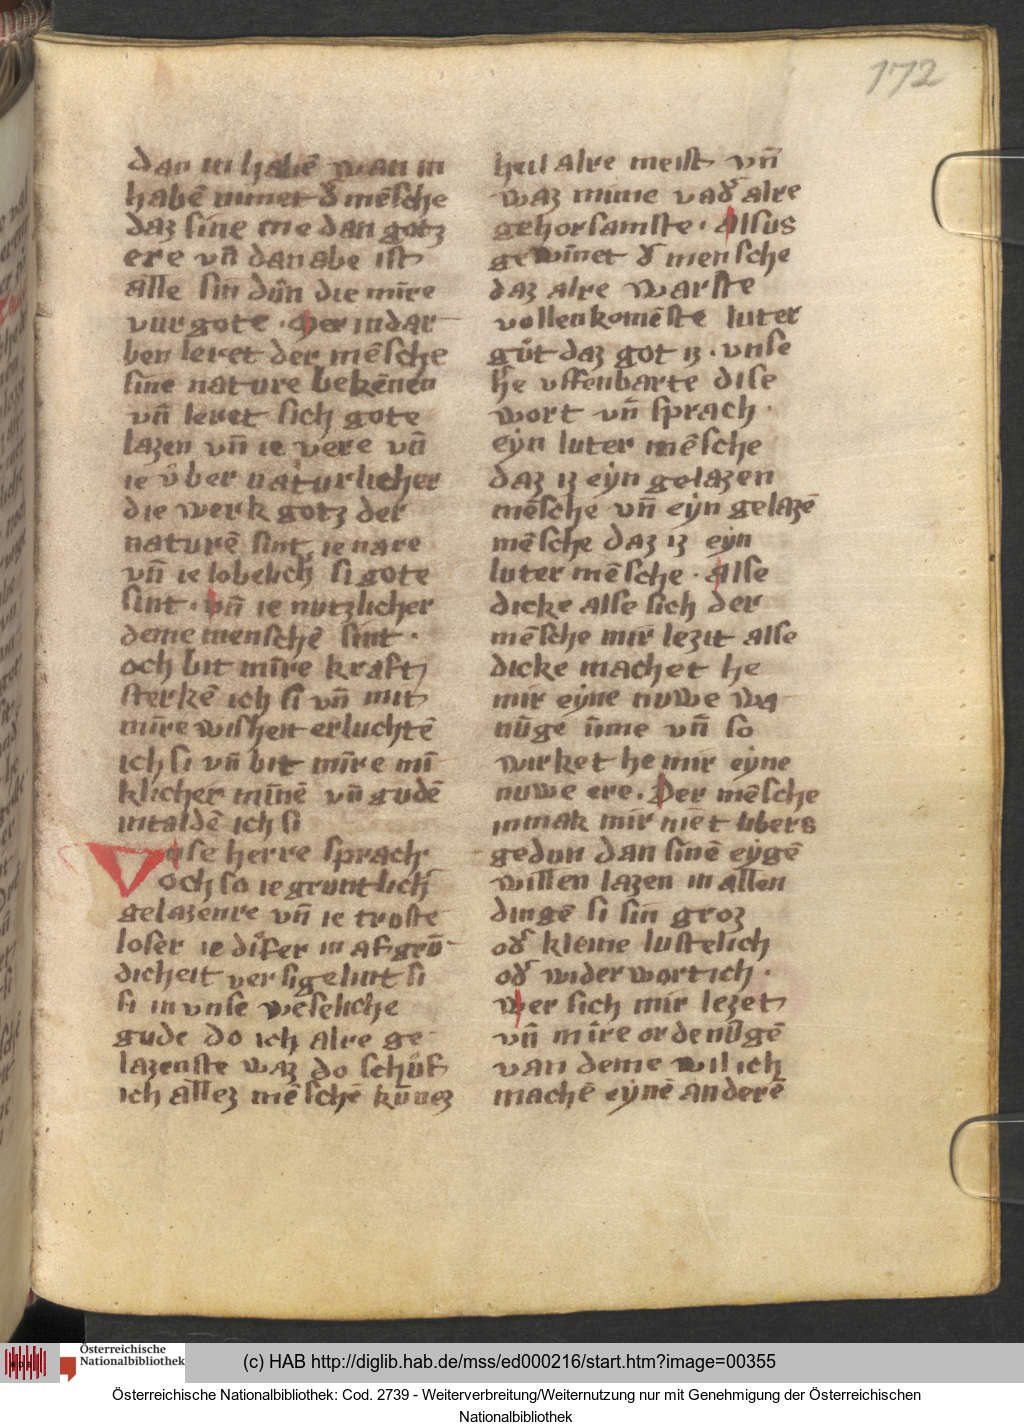 172
dan in habē wan in
habē nimet d̕ mēsche
daz sine me dan gotz
ere vn̄ dan abe ist
alle sin dūn die mīre
vur gote · Der in dar
ben leret der mēsche
sine nature bekēnen
vn̄ leret sich gote
lazen vn̄ ie vere vn̄
ie vͦber naturlicher
die werk gotz der
naturē sint, ie nare
vn̄ ie lobelich si gote
sint · vn̄ ie nutzlicher
deme menschē sint ·
och bit mīre kraft
sterkē ich si vn̄ mit
mīre wisheit erluchtē
ich si vn̄ bit mīre mī
klicher mīnē vn̄ gudē
intaldē ich si
Vnse herre sprach
och so ie gruntlich
gelazenre vn̄ ie troste
loser ie difer in afgrū
dicheit versigelint si
si in vnse weseliche
gude do ich alre ge
lazenste waz do schůf
ich allez mēschē kūnez
heil alre meist vn̄
waz mime vad̕ alre
gehorsamste · Alsus
gewīnet d̕ mensche
daz alre warste
vollenkomēste luter
gůt daz got iz · vnse
h̕e vffenbarte dise
wort vn̄ sprach ·
eyn luter mēsche
daz iz eyn gelazen
mēsche vn̄ eyn gelazē
mēsche daz iz eyn
luter mēsche · Alse
dicke alse sich der
mēsche mir lezit alse
dicke machet he
mir eyne nuwe wa
nūge īnme vn̄ so
wirket he mir eyne
nuwe ere · Der mēsche
in mak mir niet ubers
gedun dan sinē eygē
willen lazen in allen
dingē si sin groz
od̕ kleine lustelich
od̕ widerwortich ·
wer sich mir lezet
vn̄ mīre ordenūgē
van deme wil ich
machē eynē anderē
Österreichische
Nationalbibliothek
(c) HAB http://diglib.hab.de/mss/ed000216/start.htm?image=00355
Österreichische Nationalbibliothek: Cod. 2739 - Weiterverbreitung/Weiternutzung nur mit Genehmigung der Österreichischen
Nationalbibliothek